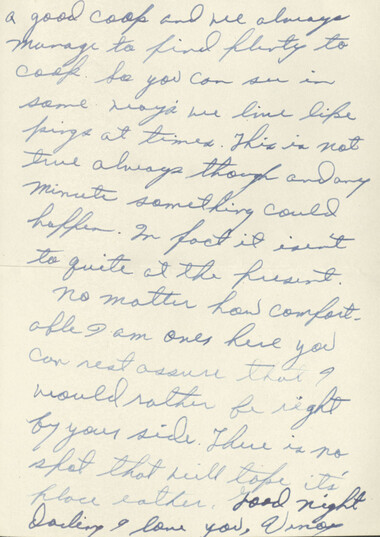 a good cook and we always
manage to find plenty to
cook. So you can see in
some ways we live like
kings at times. This is not
true always though and any
minute something could
happen. In fact it isen't
to quite at the present.
No matter how comfort-
able I am ones here you
can rest assure that I
would rather be right
by your side. There is no
spot that will take it's
place eather. Good night
Darling I love you,